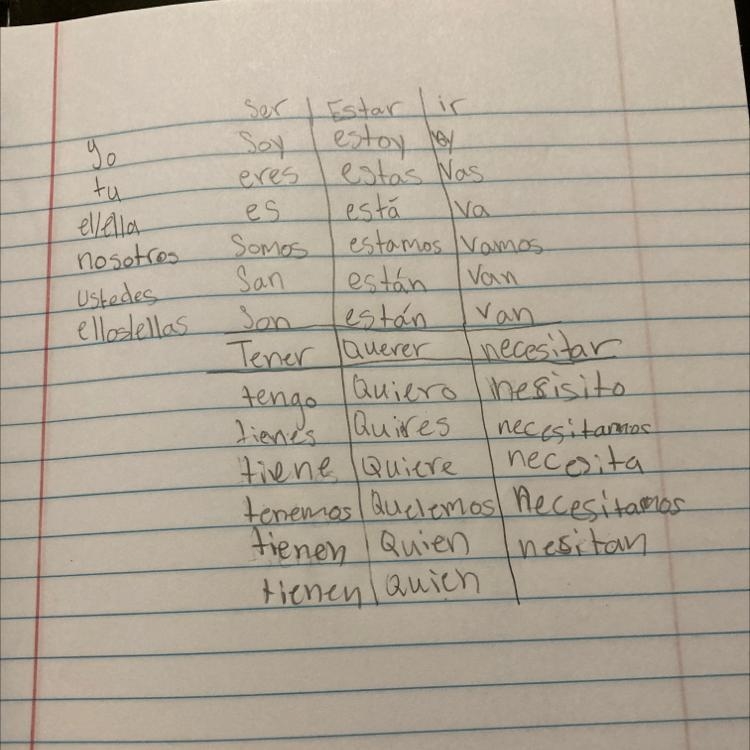 Ser Estar ir
yo Soy estoy voy
tu eres estas Vas
el/ella es está va
nosotros Somos estamos Vamos
ustedes San están van
ellos/ellas Son están van
Tener Querer necesitar
tengo Quiero nesisito
tienes Quires necesitamos
tiene Quiere necesita
tenemos Quelemos Necesitamos
tienen Quien nesitan
tienen Quien